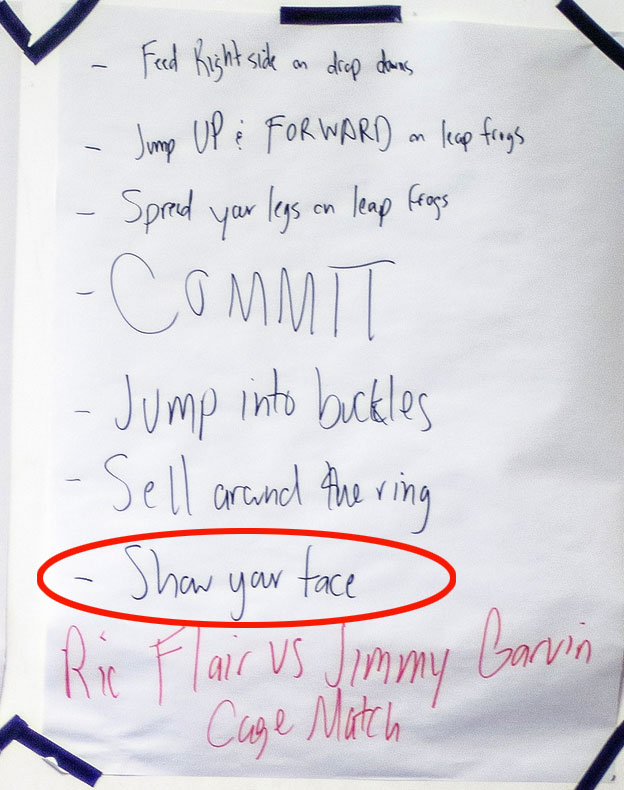 - Feed Right side on drop downs
- Jump UP & FORWARD on leap frogs
- Spread your legs on leap frogs
- COMMIT
- Jump into buckles
- Sell around the ring
- Show your face
Ric Flair vs Jimmy Garvin
Cage Match